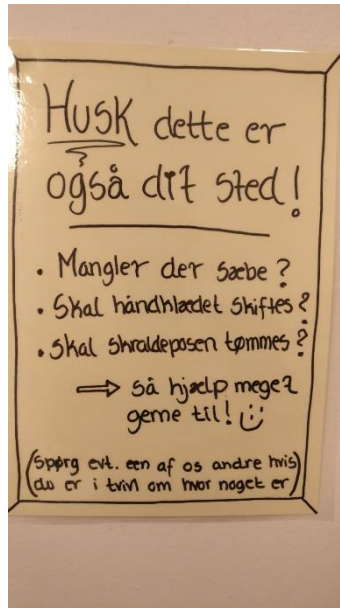 HUSK dette er
også dit sted!
• Mangler der sæbe?
• Skal håndklædet skiftes?
• Skal skraldeposen tømmes?
⇒ så hjælp meget
gerne til! :)
(Spørg evt. een af os andre hvis
du er i tvivl om hvor noget er)